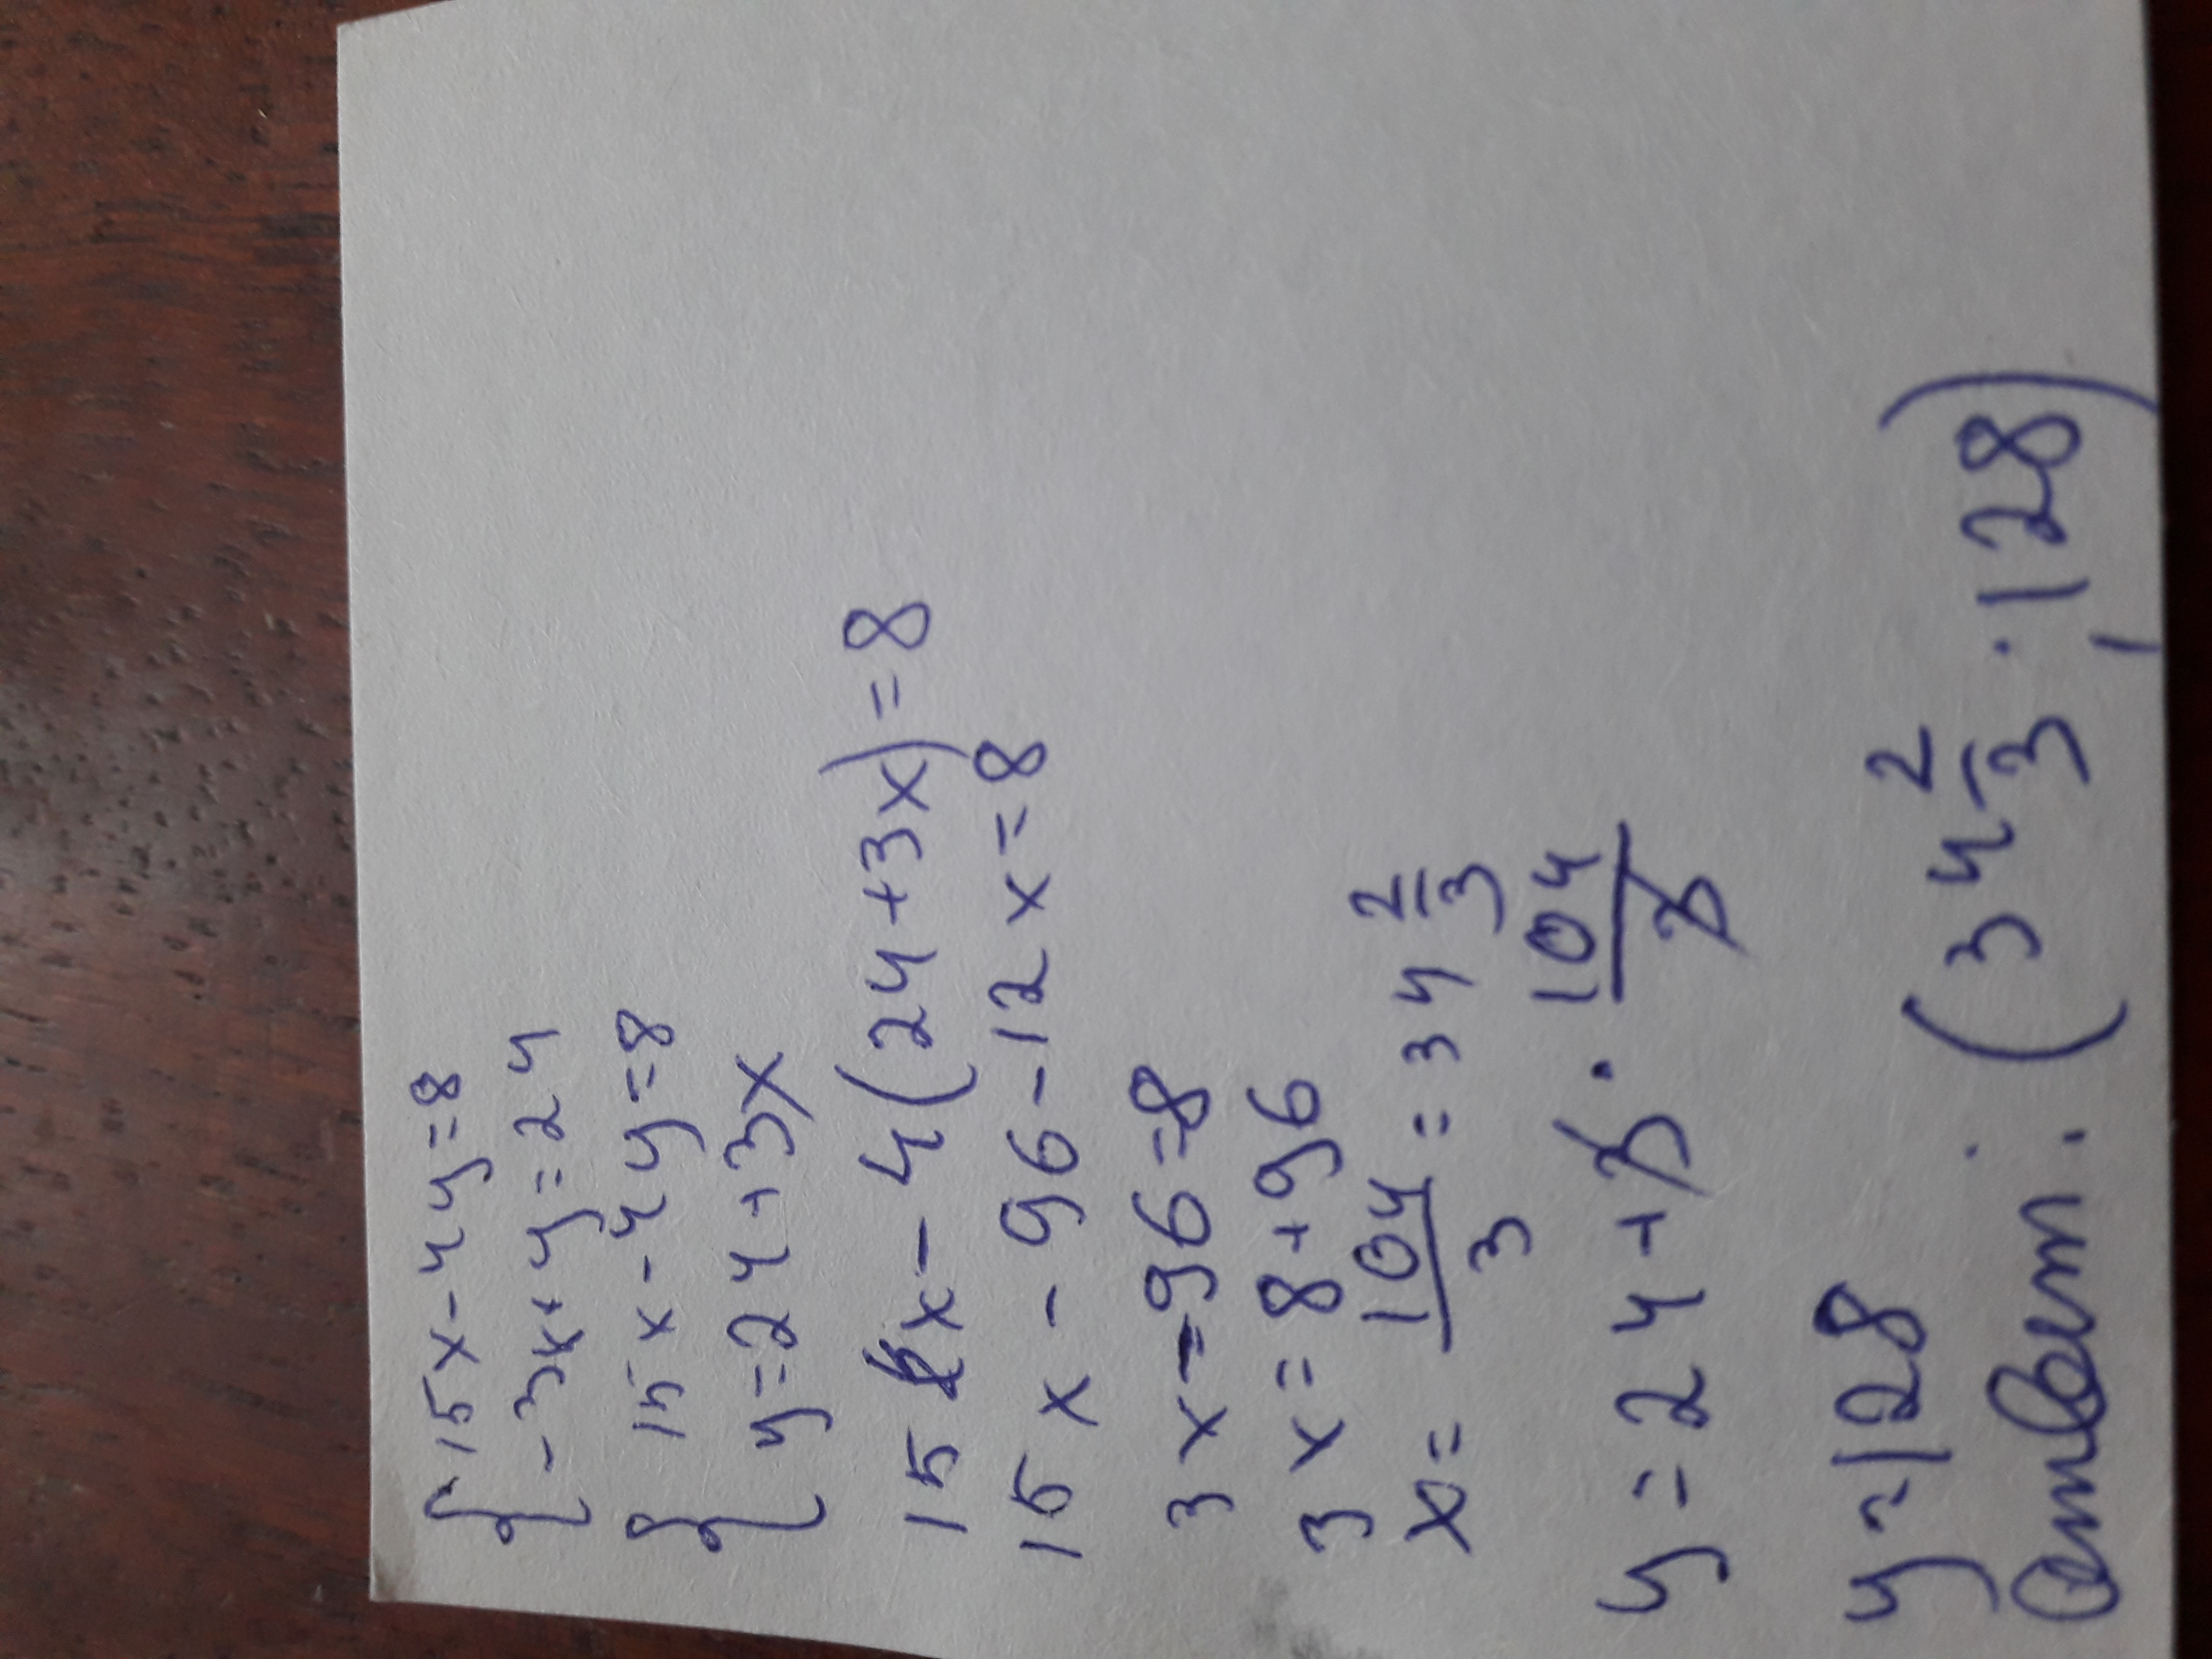 { 15x-4y=8
-3x+y=24
{ 15x-4y=8
y=24+3x
15x-4(24+3x)=8
15x-96-12x=8
3x-96=8
3x=8+96
x=104/3=34 2/3
y=24+3·104/3
y=128
Ответ: (34 2/3; 128)